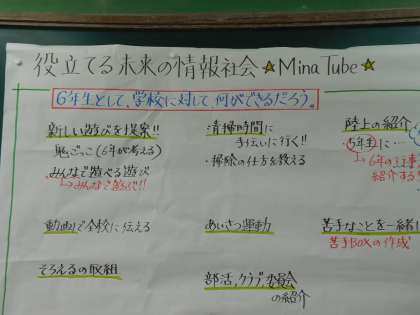 役立てる未来の情報社会 ★Mina Tube★
6年生として、学校に対して、何ができるだろう。
新しい遊びを提案!!
鬼ごっこ(6年が考える)
みんなで遊べる遊び
→みんなで遊ぶ!!
動画で全校に伝える
そろえるの取組
・清掃時間に
手伝いに行く!!
・掃除の仕方を教える
あいさつ運動
部活,クラブ,委員会
の紹介
陸上の紹介
・5年生に…
→6年の行事
紹介する
苦手なことを一緒に
苦手BOXの作成